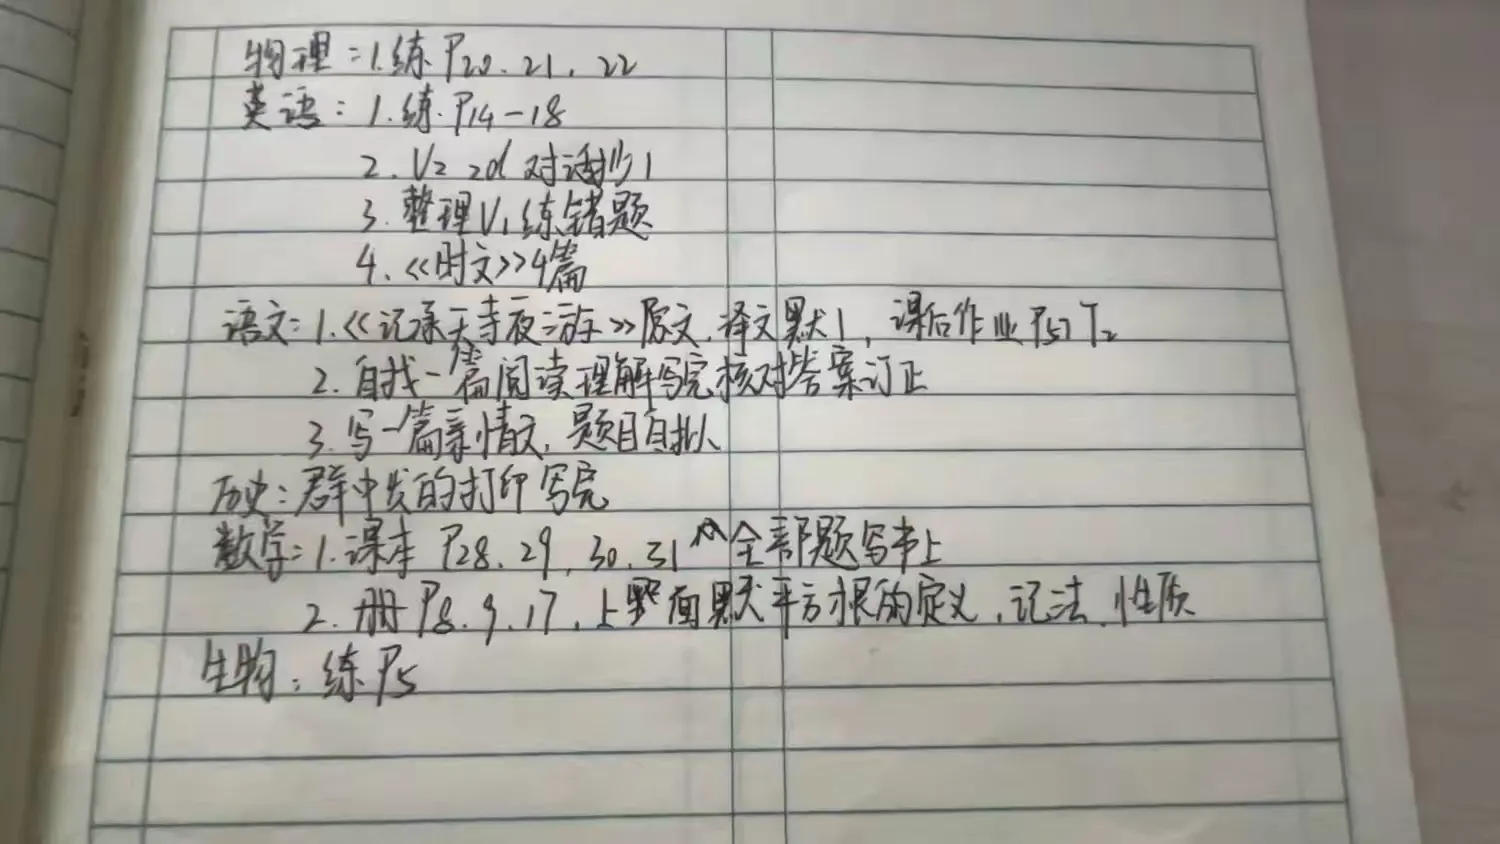 物理：1.练P20.21.22
英语：1.练.P14-18
2.U2 2d 对话抄1
3.整理U1练错题
4.《时文》4篇
语文：1.《记承天寺夜游》原文.译文默1，课后作业P57T2
2.自找一篇阅读理解写完核对答案订正
3.写一篇亲情文，题目自拟
历史：群中发的打印写完
数学：1.课本P28.29.30.31 全部题写书上
2.册P8.9.17，上面默平方根的定义.记法.性质
生物：练P5